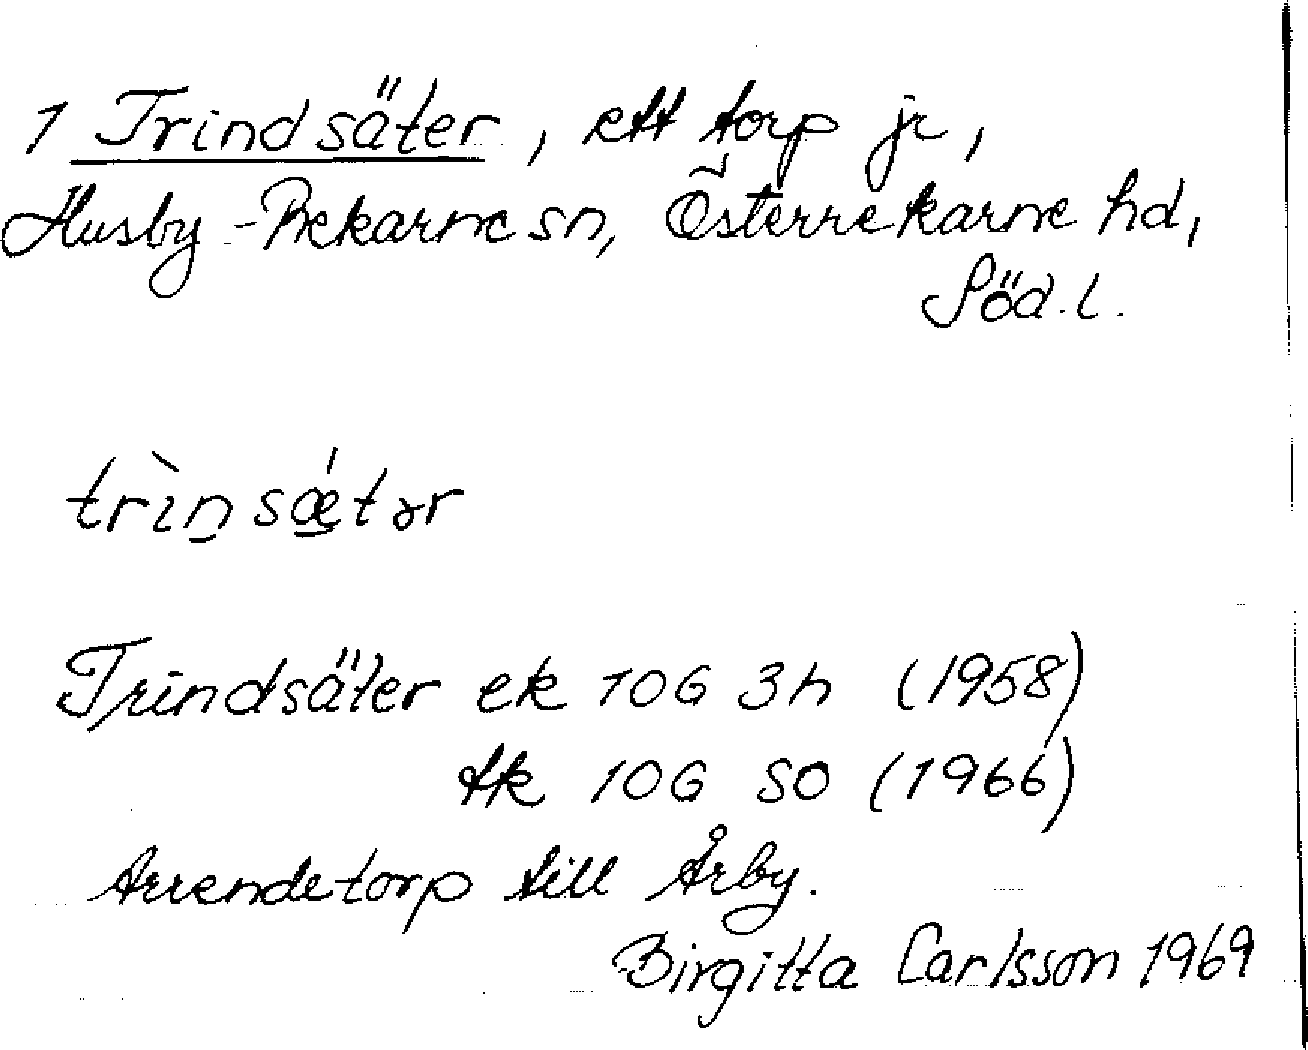 1 Trindsäter, ett torp jr,
Husby-Rekarne sn, Österrekarne hd,
Söd.l.
trìnsǽtər
Trindsäter ek 10G 3h (1958)
tk 10G SO (1966)
Arrendetorp till Årby.
Birgitta Carlsson 1969